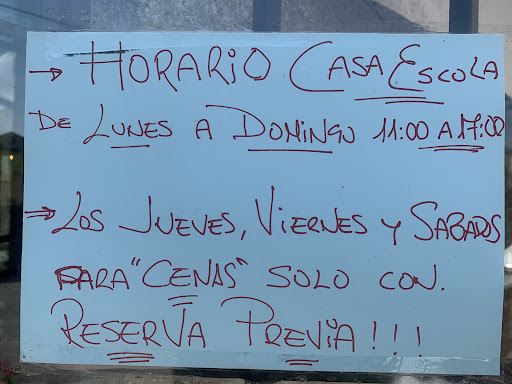 → HORARIO CASA ESCOLA
DE LUNES A DOMINGO 11:00 A 17:00
⇒ LOS JUEVES, VIERNES Y SABADOS
PARA "CENAS" SOLO CON.
RESERVA PREVIA!!!